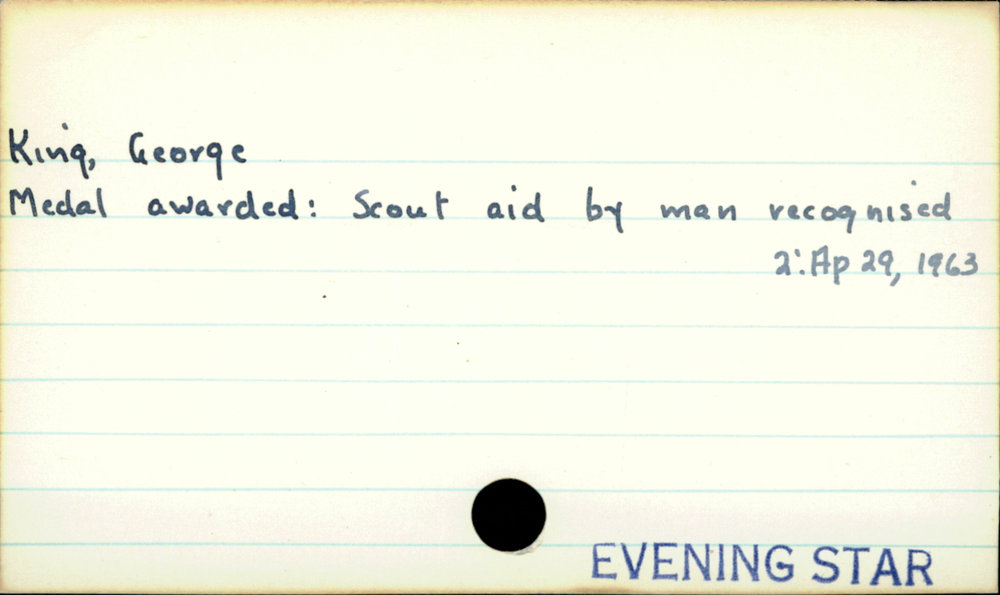 King, George
Medal awarded: Scout aid by man recognised
2:Ap 29, 1963
EVENING STAR